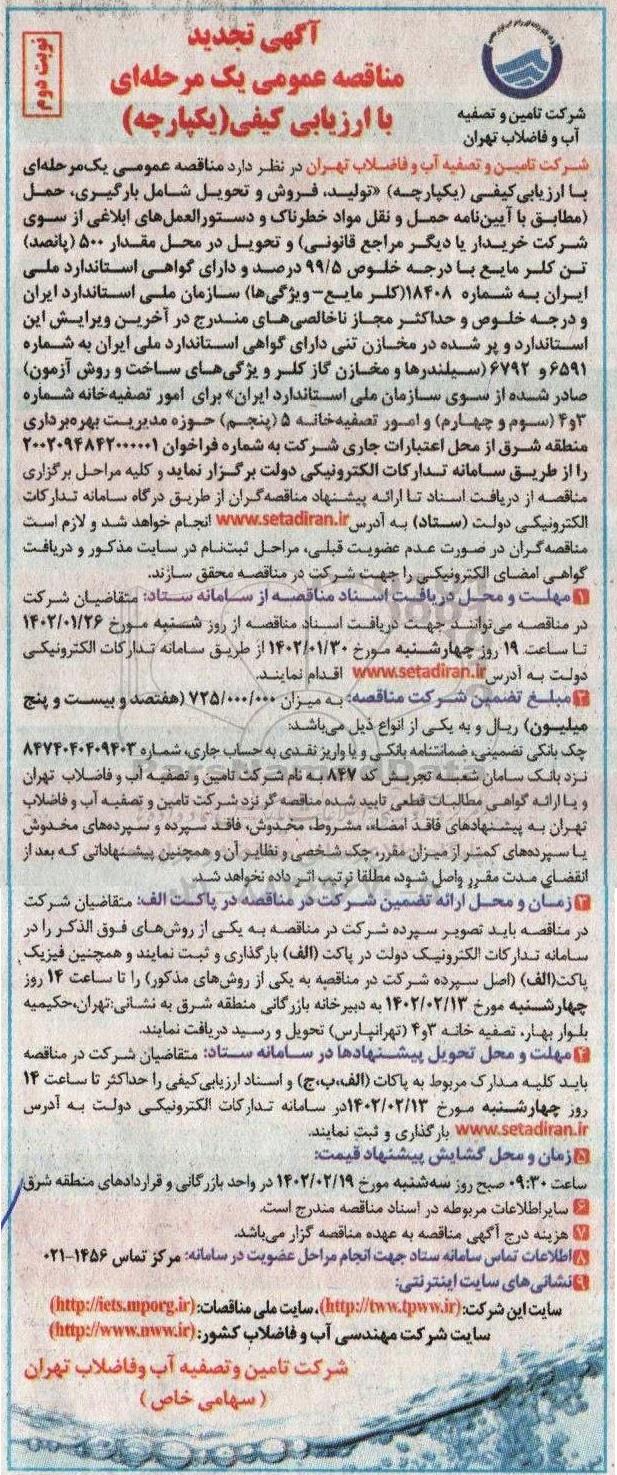 آگهی تجدید
مناقصه عمومی یک مرحله‌ای
با ارزیابی کیفی(یکپارچه)
نوبت دوم
شرکت تامین و تصفیه
آب و فاضلاب تهران
شرکت تامین و تصفیه آب و فاضلاب تهران در نظر دارد مناقصه عمومی یک‌مرحله‌ای
با ارزیابی‌کیفی (یکپارچه) «تولید، فروش و تحویل شامل بارگیری، حمل
(مطابق با آیین‌نامه حمل و نقل مواد خطرناک و دستورالعمل‌های ابلاغی از سوی
شرکت خریدار یا دیگر مراجع قانونی) و تحویل در محل مقدار ۵۰۰ (پانصد)
تن کلر مایع با درجه خلوص ۹۹/۵ درصد و دارای گواهی استاندارد ملی
ایران به شماره ۱۸۴۰۸(کلر مایع-ویژگی‌ها) سازمان ملی استاندارد ایران
و درجه خلوص و حداکثر مجاز ناخالصی‌های مندرج در آخرین ویرایش این
استاندارد و پر شده در مخازن تنی دارای گواهی استاندارد ملی ایران به شماره
۶۵۹۱ و ۶۷۹۲ (سیلندرها و مخازن گاز کلر و یژگی‌های ساخت و روش آزمون)
صادر شده از سوی سازمان ملی استاندارد ایران» برای امور تصفیه‌خانه شماره
۳و۴ (سوم و چهارم) و امور تصفیه‌خانه ۵ (پنجم) حوزه مدیریت بهره‌برداری
منطقه شرق از محل اعتبارات جاری شرکت به شماره فراخوان ۲۰۰۲۰۹۴۸۴۲۰۰۰۰۰۱
را از طریق سامانه تدارکات الکترونیکی دولت برگزار نماید و کلیه مراحل برگزاری
مناقصه از دریافت اسناد تا ارائه پیشنهاد مناقصه‌گران از طریق درگاه سامانه تدارکات
الکترونیکی دولت (ستاد) به آدرس www.setadiran.ir انجام خواهد شد و لازم است
مناقصه‌گران در صورت عدم عضویت قبلی، مراحل ثبت‌نام در سایت مذکور و دریافت
گواهی امضای الکترونیکی را جهت شرکت در مناقصه محقق سازند.
۱ مهلت و محل دریافت اسناد مناقصه از سامانه ستاد: متقاضیان شرکت
در مناقصه می‌توانند جهت دریافت اسناد مناقصه از روز شنبه مورخ ۱۴۰۲/۰۱/۲۶
تا ساعت ۱۹ روز چهارشنبه مورخ ۱۴۰۲/۰۱/۳۰ از طریق سامانه تدارکات الکترونیکی
دولت به آدرس www.setadiran.ir اقدام نمایند.
۲ مبلغ تضمین شرکت مناقصه: به میزان ۷۲۵/۰۰۰/۰۰۰ (هفتصد و بیست و پنج
میلیون) ریال و به یکی از انواع ذیل می‌باشد:
چک بانکی تضمینی، ضمانتنامه بانکی و یا واریز نقدی به حساب جاری، شماره ۸۴۷۴۰۴۰۴۰۹۴۰۳
نزد بانک سامان شعبه تجریش کد ۸۴۷ به نام شرکت تامین و تصفیه آب و فاضلاب تهران
و یا ارائه گواهی مطالبات قطعی تایید شده مناقصه گر نزد شرکت تامین و تصفیه آب و فاضلاب
تهران به پیشنهادهای فاقد امضاء، مشروط، مخدوش، فاقد سپرده و سپرده‌های مخدوش
یا سپرده‌های کمتر از میزان مقرر، چک شخصی و نظایر آن و همچنین پیشنهاداتی که بعد از
انقضای مدت مقرر واصل شود، مطلقا ترتیب اثر داده نخواهد شد.
۳ زمان و محل ارائه تضمین شرکت در مناقصه در پاکت الف: متقاضیان شرکت
در مناقصه باید تصویر سپرده شرکت در مناقصه به یکی از روش‌های فوق الذکر را در
سامانه تدارکات الکترونیک دولت در پاکت (الف) بارگذاری و ثبت نمایند و همچنین فیزیک
پاکت(الف) (اصل سپرده شرکت در مناقصه به یکی از روش‌های مذکور) را تا ساعت ۱۴ روز
چهارشنبه مورخ ۱۴۰۲/۰۲/۱۳ به دبیرخانه بازرگانی منطقه شرق به نشانی:تهران،حکیمیه
بلوار بهار، تصفیه خانه ۳و۴ (تهرانپارس) تحویل و رسید دریافت نمایند.
۴ مهلت و محل تحویل پیشنهادها در سامانه ستاد: متقاضیان شرکت در مناقصه
باید کلیه مدارک مربوط به پاکات (الف،ب،ج) و اسناد ارزیابی‌کیفی را حداکثر تا ساعت ۱۴
روز چهارشنبه مورخ ۱۴۰۲/۰۲/۱۳در سامانه تدارکات الکترونیکی دولت به آدرس
www.setadiran.ir بارگذاری و ثبت نمایند.
۵ زمان و محل گشایش پیشنهاد قیمت:
ساعت ۰۹:۳۰ صبح روز سه‌شنبه مورخ ۱۴۰۲/۰۲/۱۹ در واحد بازرگانی و قراردادهای منطقه شرق
۶ سایراطلاعات مربوطه در اسناد مناقصه مندرج است.
۷ هزینه درج آگهی مناقصه به عهده مناقصه گزار می‌باشد.
۸ اطلاعات تماس سامانه ستاد جهت انجام مراحل عضویت در سامانه: مرکز تماس ۱۴۵۶-۰۲۱
۹ نشانی‌های سایت اینترنتی:
سایت این شرکت: (http://tww.tpww.ir)، سایت ملی مناقصات: (http://iets.mporg.ir)
سایت شرکت مهندسی آب و فاضلاب کشور: (http://www.nww.ir)
شرکت تامین وتصفیه آب وفاضلاب تهران
( سهامی خاص )